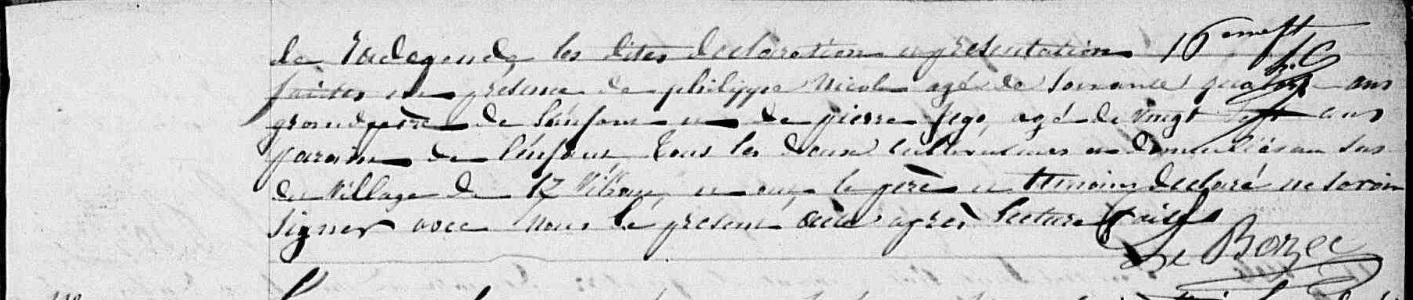 de Radegonde, les dites declaration et presentation
faites en présence de philippe Nicolas agé de soixante quatorze ans
grandpère de l'enfant et de pierre jego, agé de vingt sept ans
parain de l'enfant tous les deux cultivateurs et domiciliés au
du village de et ont le père et temoins declaré ne savoir
signer avec nous le présent acte après lecture faite
Le Bozec